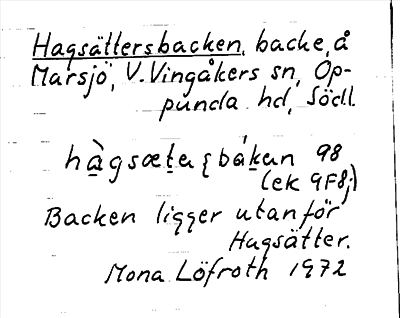 Hagsättersbacken, backe, å
Marsjö, V. Vingåkers sn, Op-
punda hd, Södl.
98
(ek 9F8j)
Backen ligger utanför
Hagsätter.
Mona Löfroth 1972